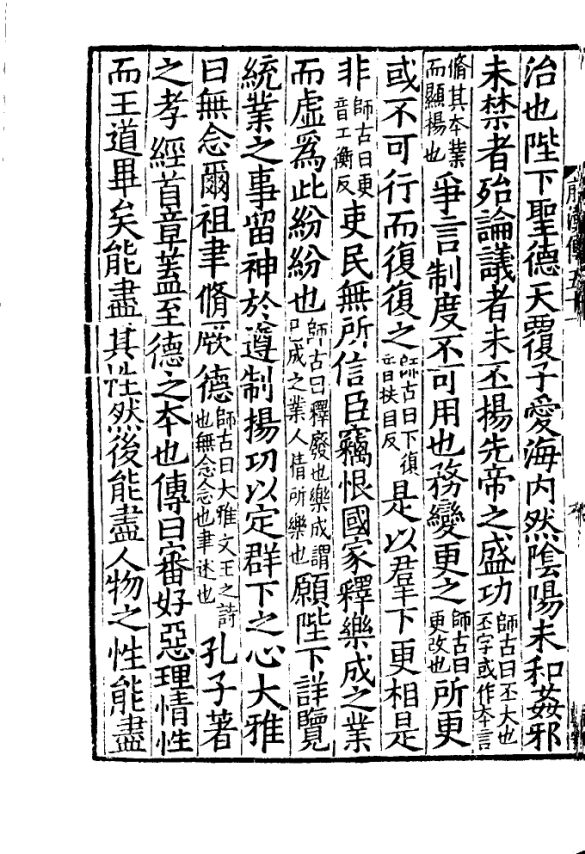 治也陛下聖德天覆子愛海内然隂陽未和姦邪
未禁者殆論議者未丕揚先帝之盛功師古曰丕大也丕字或作本言
脩其本業而顯揚也爭言制度不可用也務變更之師古曰更改也所更
或不可行而復復之師古曰下復音扶目反是以羣下更相是
非師古曰更音工衡反吏民無所信臣竊恨國家釋樂成之業
而虛爲此紛紛也師古曰釋廢也樂成謂已成之業人情所樂也願陛下詳覽
統業之事留神於遵制揚功以定群下之心大雅
曰無念爾祖聿脩厥德師古曰大雅文王之詩也無念念也聿述也孔子著
之孝經首章蓋至德之本也傳曰審好惡理情性
而王道畢矣能盡其性然後能盡人物之性能盡